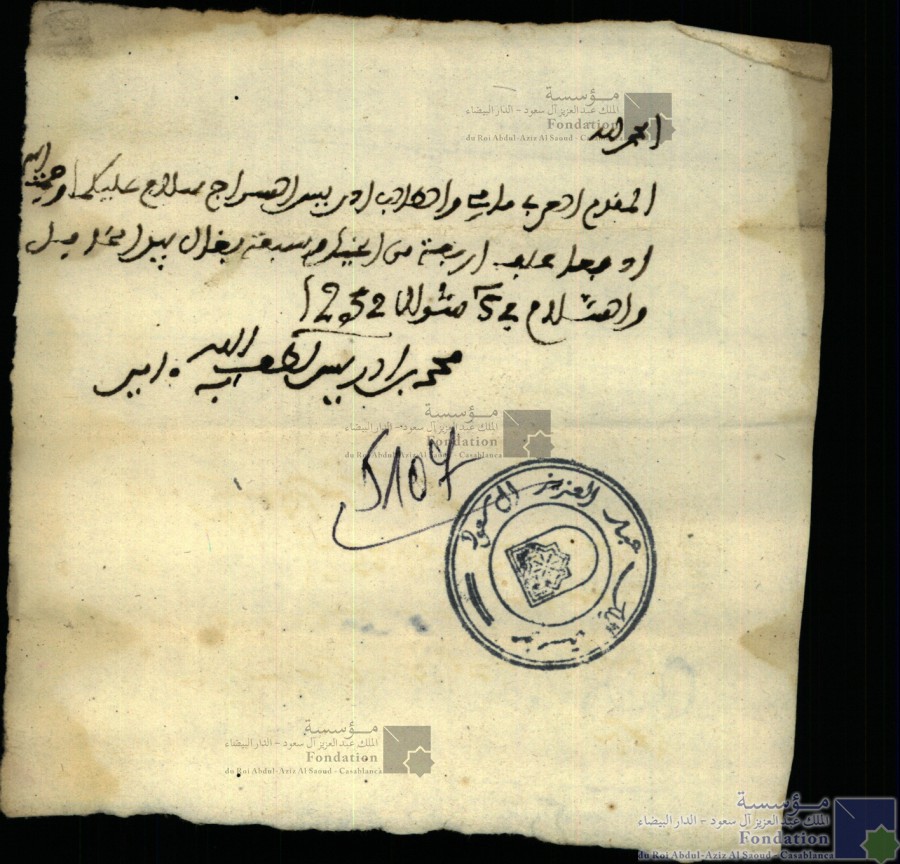 الحمد لله
المقدم العربي والطالب ادريس السراج سلام عليكما ورحمة الله
ادفعا أربعة من وسبعة بغال
والسلام في 5 شوال 1252
محمد بن ادريس لطف الله به امين
5107
عبد العزيز آل سعود
مؤسسة
الملك عبد العزيز آل سعود - الدار البيضاء
Fondation
du Roi Abdul-Aziz Al Saoud - Casablanca
مؤسسة
الملك عبد العزيز آل سعود - الدار البيضاء
Fondation
du Roi Abdul-Aziz Al Saoud - Casablanca
مؤسسة
الملك عبد العزيز آل سعود - الدار البيضاء
Fondation
du Roi Abdul-Aziz Al Saoud - Casablanca
مؤسسة
الملك عبد العزيز آل سعود - الدار البيضاء
Fondation
du Roi Abdul-Aziz Al Saoud - Casablanca